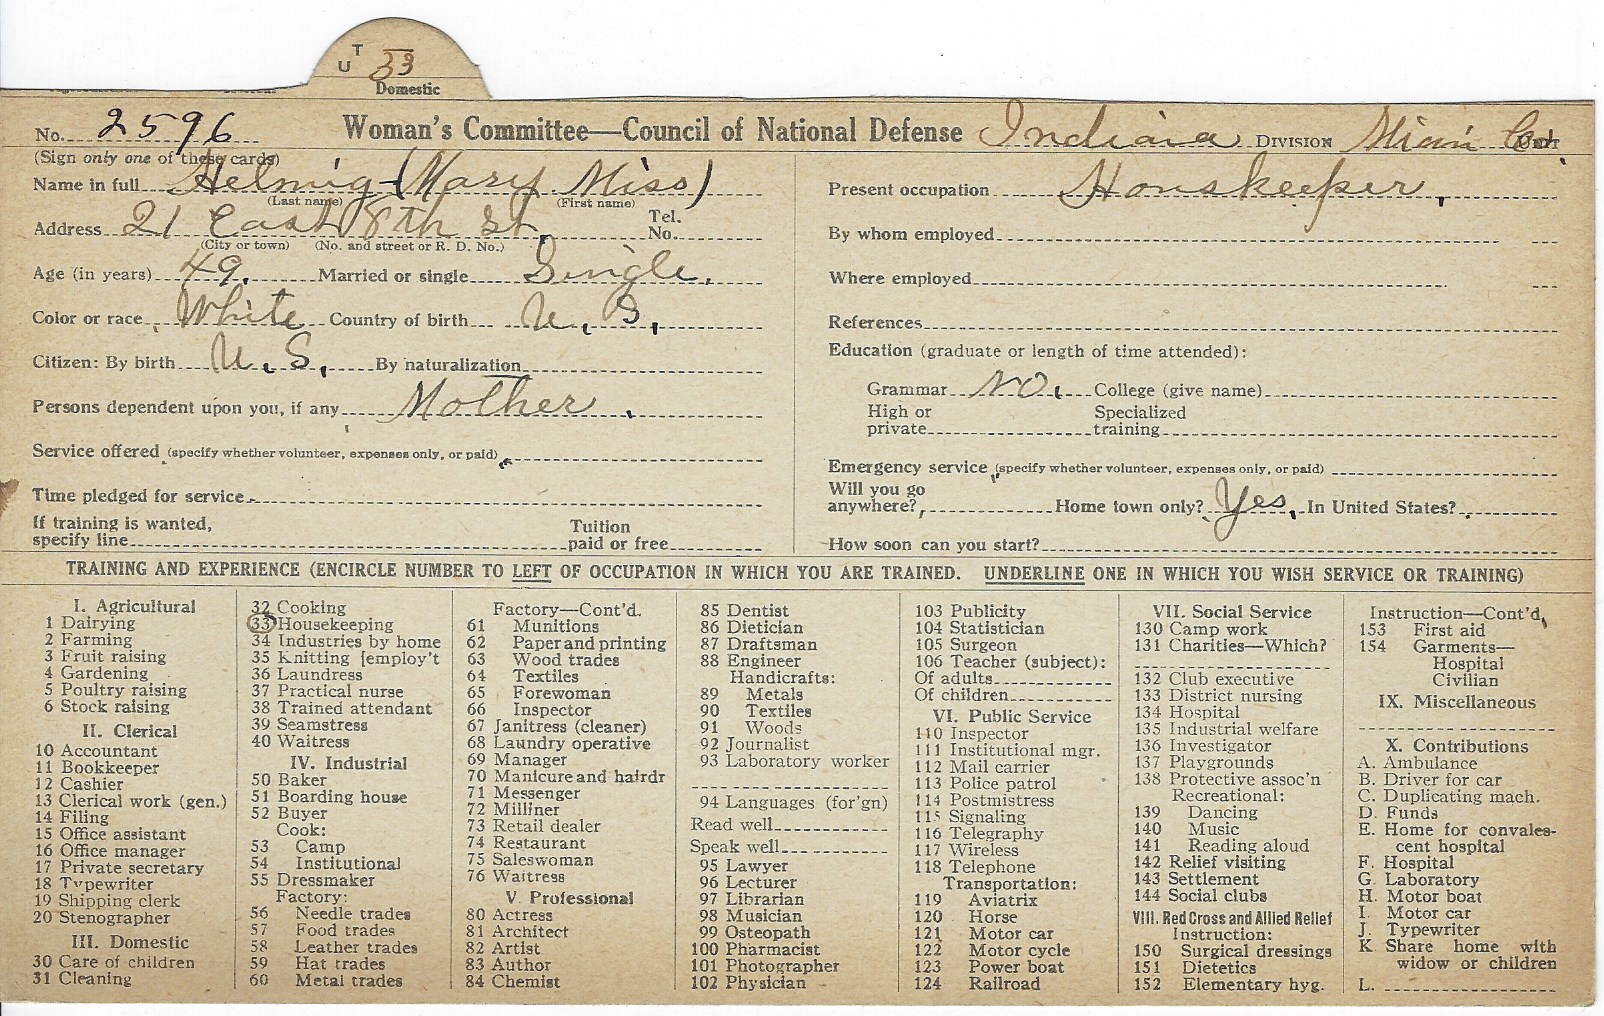 T
U 33
Domestic
No. 2596 Woman's Committee—Council of National Defense Indiana DIVISION Miami Co. UNIT
(Sign only one of these cards)
Name in full Helmig (Mary Miss)
(Last name) (First name)
Address 21 East 8th St. Tel. No.
(City or town) (No. and street or R. D. No.)
Age (in years) 49. Married or single Single.
Color or race White Country of birth U. S.
Citizen: By birth U. S. By naturalization
Persons dependent upon you, if any Mother.
Service offered (specify whether volunteer, expenses only, or paid)
Time pledged for service
If training is wanted,
specify line Tuition paid or free
Present occupation Houskeeper,
By whom employed
Where employed
References
Education (graduate or length of time attended):
Grammar NO. College (give name)
High or private Specialized training
Emergency service (specify whether volunteer, expenses only, or paid)
Will you go
anywhere? Home town only? Yes. In United States?
How soon can you start?
TRAINING AND EXPERIENCE (ENCIRCLE NUMBER TO LEFT OF OCCUPATION IN WHICH YOU ARE TRAINED. UNDERLINE ONE IN WHICH YOU WISH SERVICE OR TRAINING)
I. Agricultural
1 Dairying
2 Farming
3 Fruit raising
4 Gardening
5 Poultry raising
6 Stock raising
II. Clerical
10 Accountant
11 Bookkeeper
12 Cashier
13 Clerical work (gen.)
14 Filing
15 Office assistant
16 Office manager
17 Private secretary
18 Typewriter
19 Shipping clerk
20 Stenographer
III. Domestic
30 Care of children
31 Cleaning
32 Cooking
33 Housekeeping
34 Industries by home
35 Knitting [employ't
36 Laundress
37 Practical nurse
38 Trained attendant
39 Seamstress
40 Waitress
IV. Industrial
50 Baker
51 Boarding house
52 Buyer
Cook:
53 Camp
54 Institutional
55 Dressmaker
Factory:
56 Needle trades
57 Food trades
58 Leather trades
59 Hat trades
60 Metal trades
Factory—Cont'd.
61 Munitions
62 Paper and printing
63 Wood trades
64 Textiles
65 Forewoman
66 Inspector
67 Janitress (cleaner)
68 Laundry operative
69 Manager
70 Manicure and hairdr
71 Messenger
72 Milliner
73 Retail dealer
74 Restaurant
75 Saleswoman
76 Waitress
V. Professional
80 Actress
81 Architect
82 Artist
83 Author
84 Chemist
85 Dentist
86 Dietician
87 Draftsman
88 Engineer
Handicrafts:
89 Metals
90 Textiles
91 Woods
92 Journalist
93 Laboratory worker
94 Languages (for'gn)
Read well
Speak well
95 Lawyer
96 Lecturer
97 Librarian
98 Musician
99 Osteopath
100 Pharmacist
101 Photographer
102 Physician
103 Publicity
104 Statistician
105 Surgeon
106 Teacher (subject):
Of adults
Of children
VI. Public Service
110 Inspector
111 Institutional mgr.
112 Mail carrier
113 Police patrol
114 Postmistress
115 Signaling
116 Telegraphy
117 Wireless
118 Telephone
Transportation:
119 Aviatrix
120 Horse
121 Motor car
122 Motor cycle
123 Power boat
124 Railroad
VII. Social Service
130 Camp work
131 Charities—Which?
132 Club executive
133 District nursing
134 Hospital
135 Industrial welfare
136 Investigator
137 Playgrounds
138 Protective assoc'n
Recreational:
139 Dancing
140 Music
141 Reading aloud
142 Relief visiting
143 Settlement
144 Social clubs
VIII. Red Cross and Allied Relief
Instruction:
150 Surgical dressings
151 Dietetics
152 Elementary hyg.
Instruction—Cont'd.
153 First aid
154 Garments—
Hospital
Civilian
IX. Miscellaneous
X. Contributions
A. Ambulance
B. Driver for car
C. Duplicating mach.
D. Funds
E. Home for convales-
cent hospital
F. Hospital
G. Laboratory
H. Motor boat
I. Motor car
J. Typewriter
K. Share home with
widow or children
L.